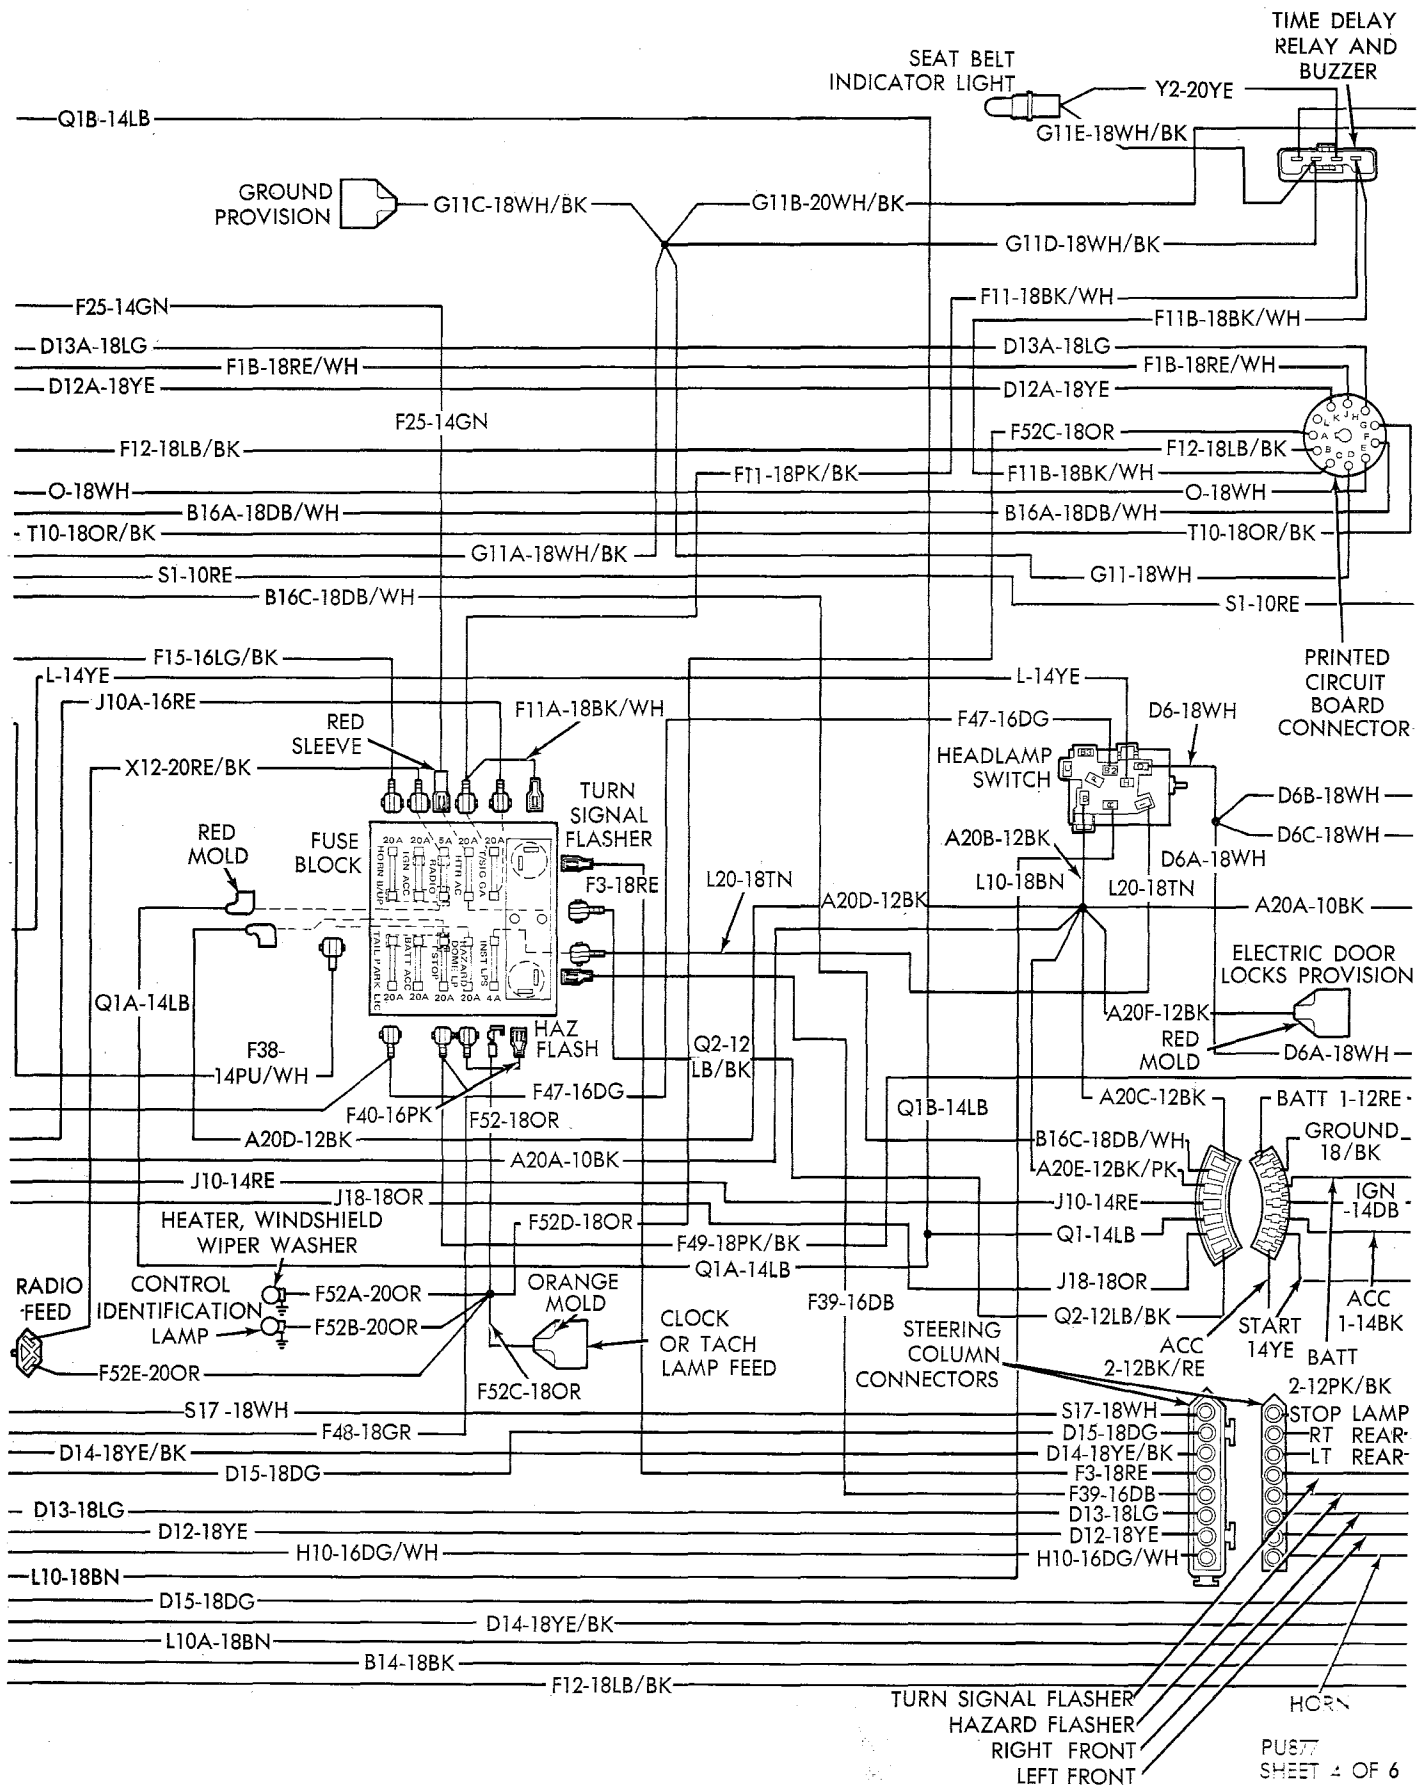 TIME DELAY
RELAY AND
BUZZER
SEAT BELT
INDICATOR LIGHT
Y2-20YE
Q1B-14LB
G11E-18WH/BK
GROUND
PROVISION
G11C-18WH/BK
G11B-20WH/BK
G11D-18WH/BK
F25-14GN
F11-18BK/WH
F11B-18BK/WH
D13A-18LG
D13A-18LG
F1B-18RE/WH
F1B-18RE/WH
D12A-18YE
D12A-18YE
F25-14GN
F52C-18OR
F12-18LB/BK
F12-18LB/BK
L K J H G F E D C B A
F11-18PK/BK
F11B-18BK/WH
O-18WH
O-18WH
B16A-18DB/WH
B16A-18DB/WH
T10-18OR/BK
T10-18OR/BK
G11A-18WH/BK
G11-18WH
S1-10RE
S1-10RE
B16C-18DB/WH
PRINTED
CIRCUIT
BOARD
CONNECTOR
F15-16LG/BK
L-14YE
L-14YE
J10A-16RE
F11A-18BK/WH
F47-16DG
D6-18WH
RED
SLEEVE
HEADLAMP
SWITCH
X12-20RE/BK
TURN
SIGNAL
FLASHER
D6B-18WH
RED
MOLD
FUSE
BLOCK
20A 20A 5A 20A 20A
HORN B/UP
IGN ACC
RADIO
HTR AC
T/SIG GA
A20B-12BK
D6C-18WH
D6A-18WH
F3-18RE
L20-18TN
L10-18BN
L20-18TN
A20D-12BK
A20A-10BK
TAIL PARK LIC
BATT ACC
STOP
DOME LP
HAZARD
INST LPS
20A 20A 20A 20A 4A
ELECTRIC DOOR
LOCKS PROVISION
Q1A-14LB
A20F-12BK
HAZ
FLASH
RED
MOLD
D6A-18WH
F38-
14PU/WH
Q2-12
LB/BK
F47-16DG
F40-16PK
F52-18OR
Q1B-14LB
A20C-12BK
BATT 1-12RE
A20D-12BK
B16C-18DB/WH
GROUND
18/BK
A20A-10BK
A20E-12BK/PK
J10-14RE
J10-14RE
IGN
-14DB
J18-18OR
HEATER, WINDSHIELD
WIPER WASHER
F52D-18OR
F49-18PK/BK
Q1-14LB
Q1A-14LB
J18-18OR
RADIO
FEED
CONTROL
IDENTIFICATION
LAMP
F52A-20OR
F52B-20OR
ORANGE
MOLD
CLOCK
OR TACH
LAMP FEED
F39-16DB
Q2-12LB/BK
STEERING
COLUMN
CONNECTORS
ACC
2-12BK/RE
START
14YE
BATT
2-12PK/BK
ACC
1-14BK
F52E-20OR
F52C-18OR
S17-18WH
S17-18WH
STOP LAMP
F48-18GR
D15-18DG
RT REAR
D14-18YE/BK
D14-18YE/BK
LT REAR
D15-18DG
F3-18RE
F39-16DB
D13-18LG
D13-18LG
D12-18YE
D12-18YE
H10-16DG/WH
H10-16DG/WH
L10-18BN
D15-18DG
D14-18YE/BK
L10A-18BN
B14-18BK
F12-18LB/BK
TURN SIGNAL FLASHER
HAZARD FLASHER
RIGHT FRONT
LEFT FRONT
HORN
PU877
SHEET 4 OF 6